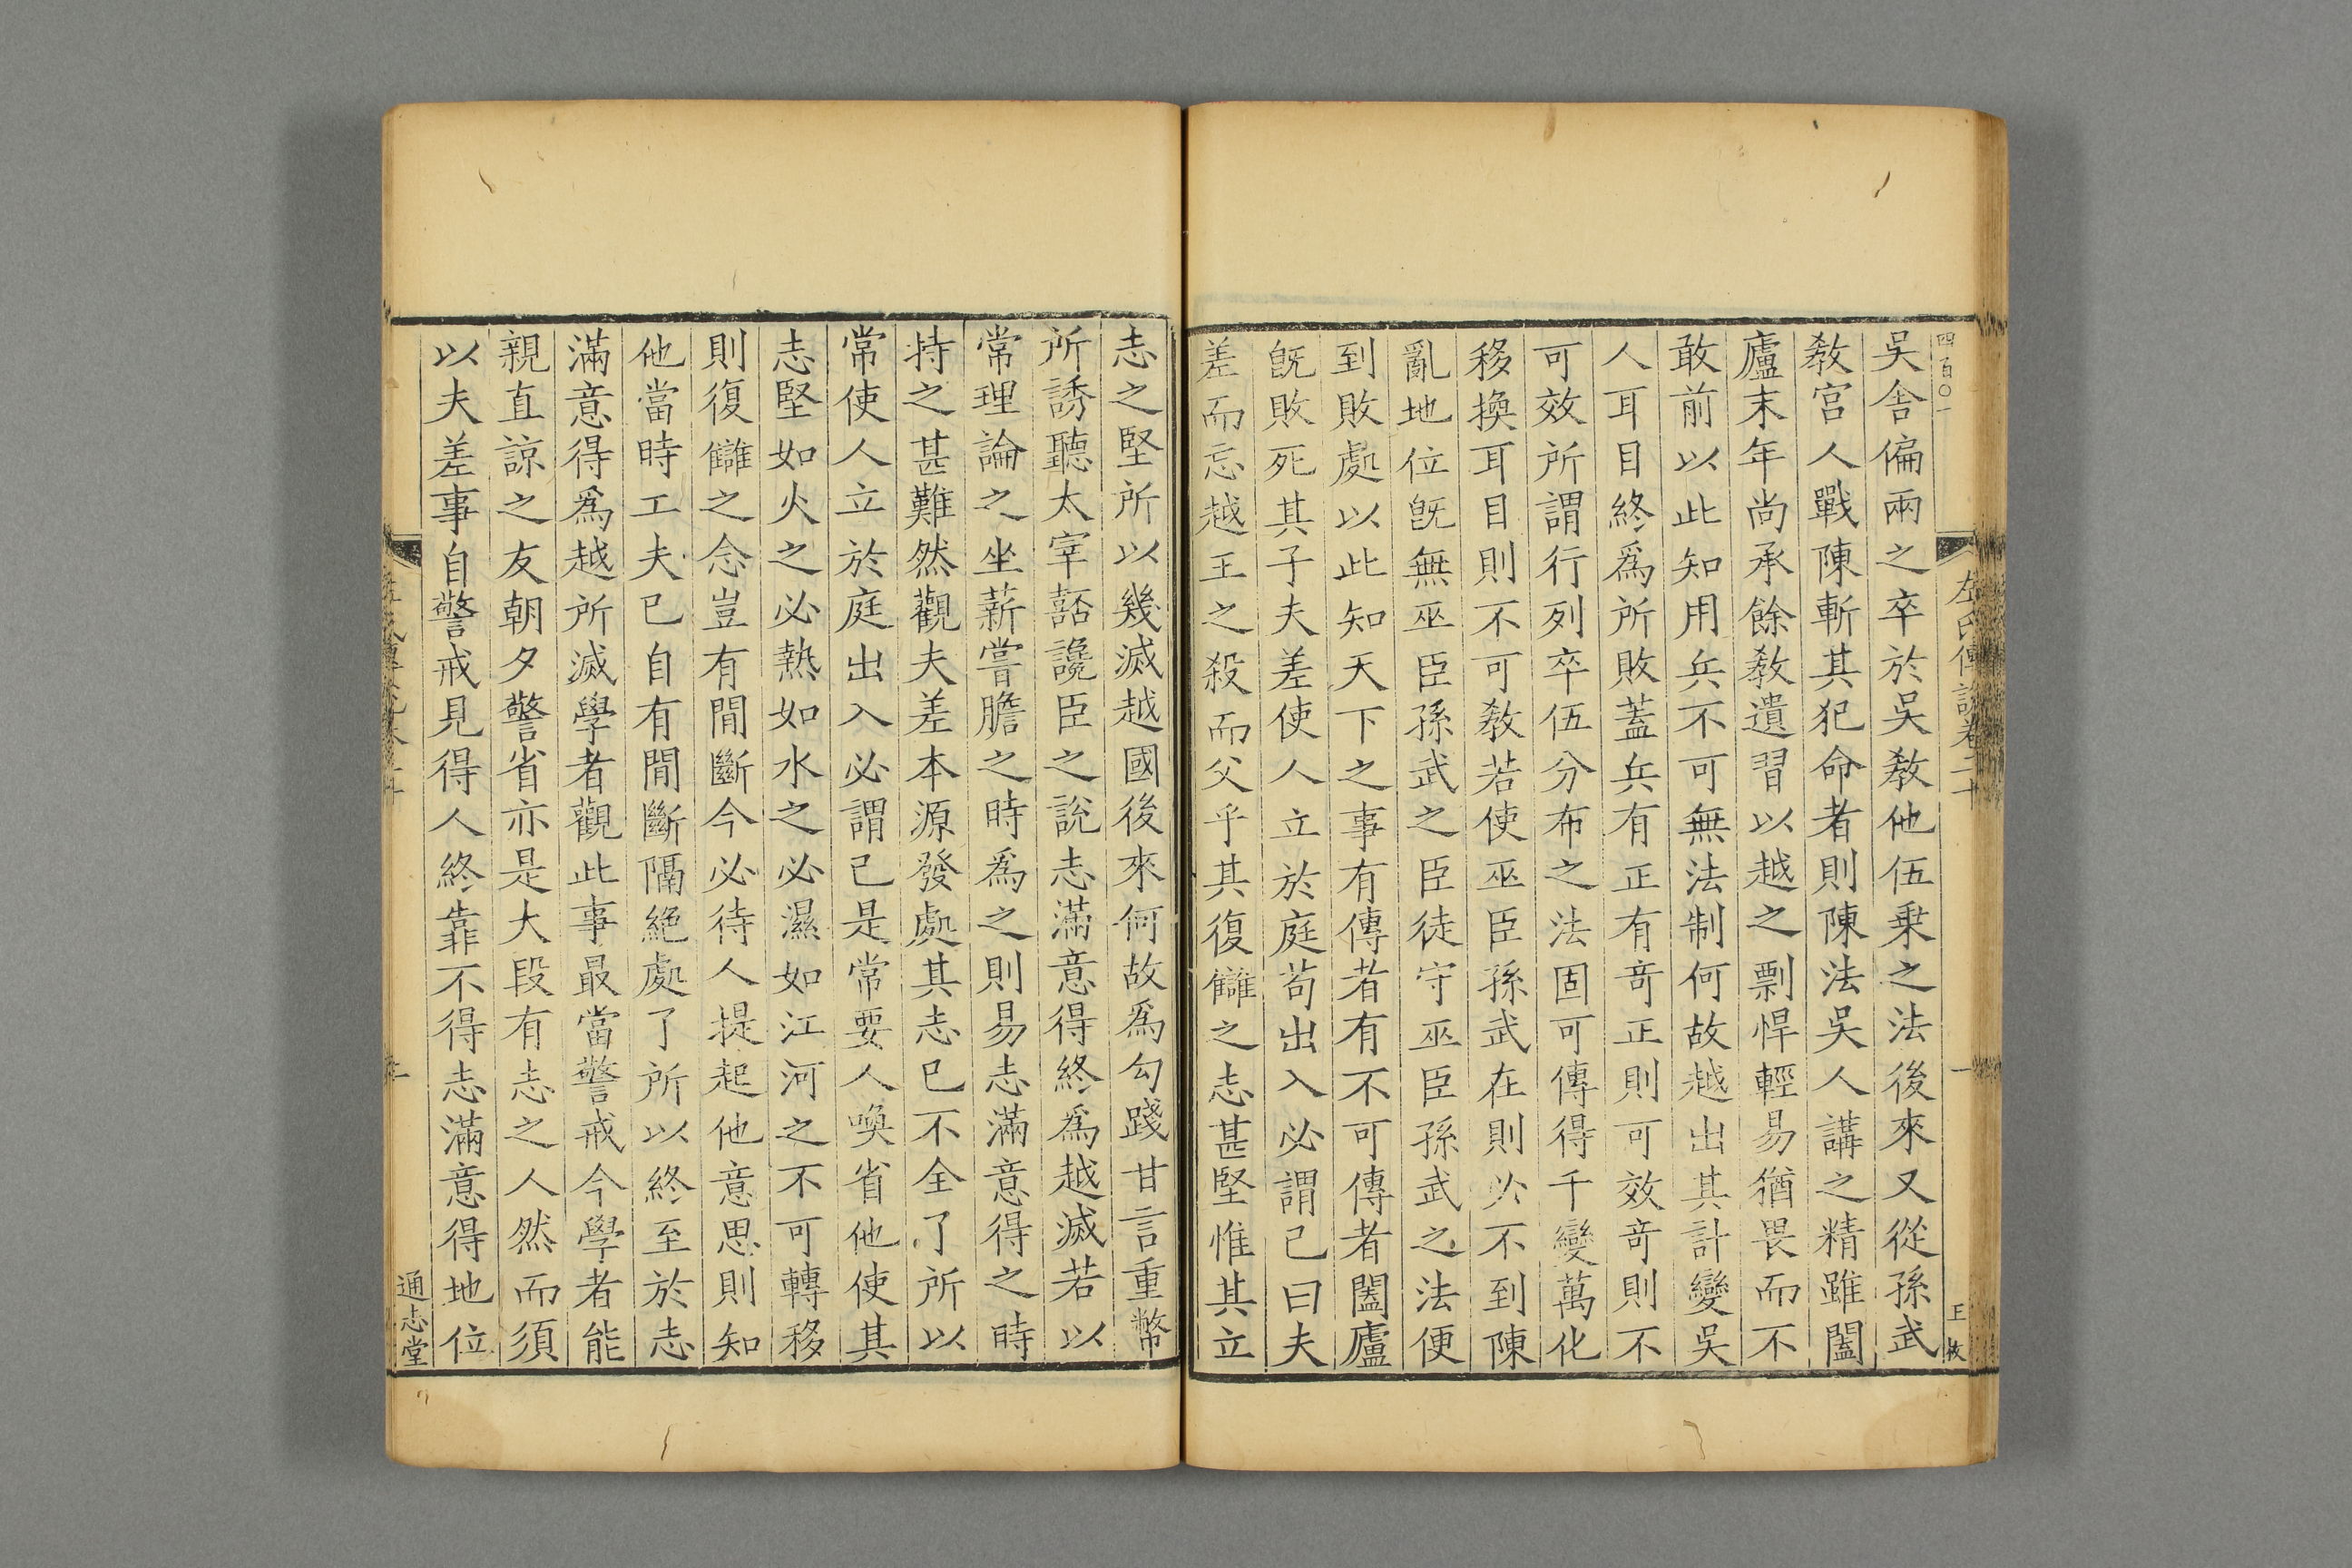 四百〇一
左氏傳說卷二十
一
王枚
吳舎偏兩之卒於吳敎他伍乗之法後來又從孫武
敎宫人戰陳斬其犯命者則陳法吳人講之精雖闔
廬末年尚承餘敎遺習以越之剽悍輕易猶畏而不
敢前以此知用兵不可無法制何故越出其計變吳
人耳目終爲所敗蓋兵有正有竒正則可效竒則不
可效所謂行列卒伍分布之法固可傳得千變萬化
移換耳目則不可敎若使巫臣孫武在則必不到陳
亂地位旣無巫臣孫武之臣徒守巫臣孫武之法便
到敗處以此知天下之事有傳者有不可傳者闔廬
旣敗死其子夫差使人立於庭苟出入必謂己曰夫
差而忘越王之殺而父乎其復讎之志甚堅惟其立
志之堅所以幾滅越國後來何故爲勾踐甘言重幣
所誘聽太宰嚭讒臣之說志滿意得終爲越滅若以
常理論之坐薪嘗膽之時爲之則易志滿意得之時
持之甚難然觀夫差本源發處其志已不全了所以
常使人立於庭出入必謂己是常要人喚省他使其
志堅如火之必熱如水之必濕如江河之不可轉移
則復讎之念豈有閒斷今必待人提起他意思則知
他當時工夫已自有閒斷隔絕處了所以終至於志
滿意得爲越所滅學者觀此事最當警戒今學者能
親直諒之友朝夕警省亦是大段有志之人然而須
以夫差事自警戒見得人終靠不得志滿意得地位
通志堂